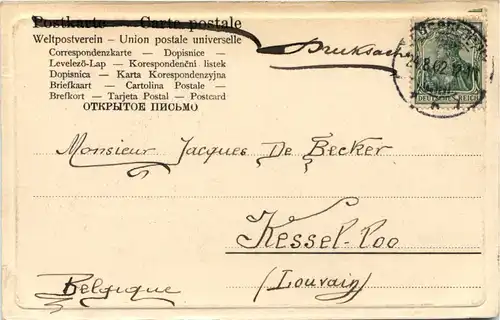 Postkarte — Carte postale
Weltpostverein – Union postale universelle
Correspondenzkarte — Dopisnice
Levelező-Lap — Korespondenční listek
Dopisnica — Karta Korespondenzyjna
Briefkaart — Cartolina Postale
Brefkort — Tarjeta Postal — Postcard
ОТКРЫТОЕ ПИСЬМО
Drucksache
DEUTSCHES REICH
Monsieur Jacques De Becker
Kessel-Loo
(Louvain)
Belgique